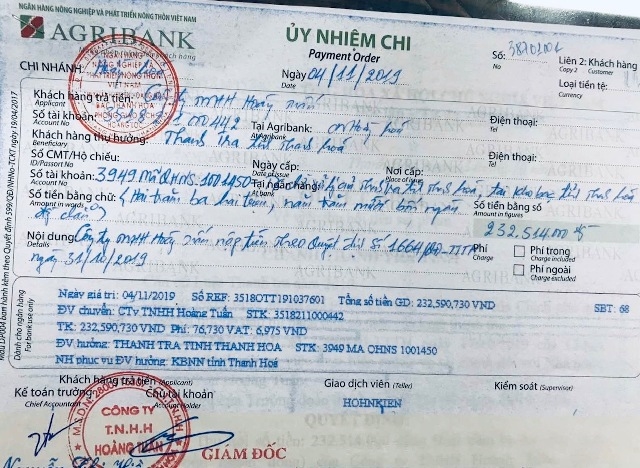 NGÂN HÀNG NÔNG NGHIỆP VÀ PHÁT TRIỂN NÔNG THÔN VIỆT NAM
AGRIBANK
ỦY NHIỆM CHI
Payment Order
Số: 38701001
No
Liên 2: Khách hàng
Copy 2 Customer
CHI NHÁNH:
Ngày 04/11/2019
Date
Loại tiền tệ:
Currency
Khách hàng trả tiền: Công ty TNHH Hoàng Tuấn
Applicant
Điện thoại:
Tel
Số tài khoản: 000442 Tại Agribank:
Account No
Khách hàng thụ hưởng: Thanh Tra tỉnh Thanh Hoá
Beneficiary
Điện thoại:
Tel
Số CMT/Hộ chiếu: Ngày cấp: Nơi cấp:
ID/Passport No Date of issue Place of issue
Số tài khoản: 3949 Mã QHNS 1001450 Tại ngân hàng: tỉnh Thanh Hoá
Account No At Bank
Số tiền bằng chữ: (Hai trăm ba hai triệu, năm trăm mười bốn ngàn
Amount in words
đ chẵn)
Số tiền bằng số
Amount in figures
232.514.000 đ
Nội dung: Công ty TNHH Hoàng Tuấn nộp tiền theo Quyết định số 1664/QĐ-TTTH
Details
ngày 31/10/2019
Phí
Charge
Phí trong
Charge included
Phí ngoài
Charge excluded
Mẫu 1DP004 ban hành kèm theo Quyết định 599/QĐ/NHNo-TCKT ngày 19/04/2017
Dành cho ngân hàng
For bank use only
Ngày giá trị: 04/11/2019 Số REF: 3518OTT191037601 Tổng số tiền GD: 232,590,730 VND SBT: 68
ĐV chuyển: CTy TNHH Hoàng Tuấn STK: 3518211000442
TK: 232,590,730 VND Phí: 76,730 VAT: 6,975 VND
ĐV hưởng: THANH TRA TINH THANH HOA STK: 3949 MA QHNS 1001450
NH phục vụ ĐV hưởng: KBNN tỉnh Thanh Hoá
Khách hàng trả tiền (Applicant)
Giao dịch viên (Teller)
Kiểm soát (Supervisor)
Kế toán trưởng
Chief Accountant
Chủ tài khoản
Account Holder
HOHNKIEN
CÔNG TY
T.N.H.H
HOÀNG TUẤN
GIÁM ĐỐC